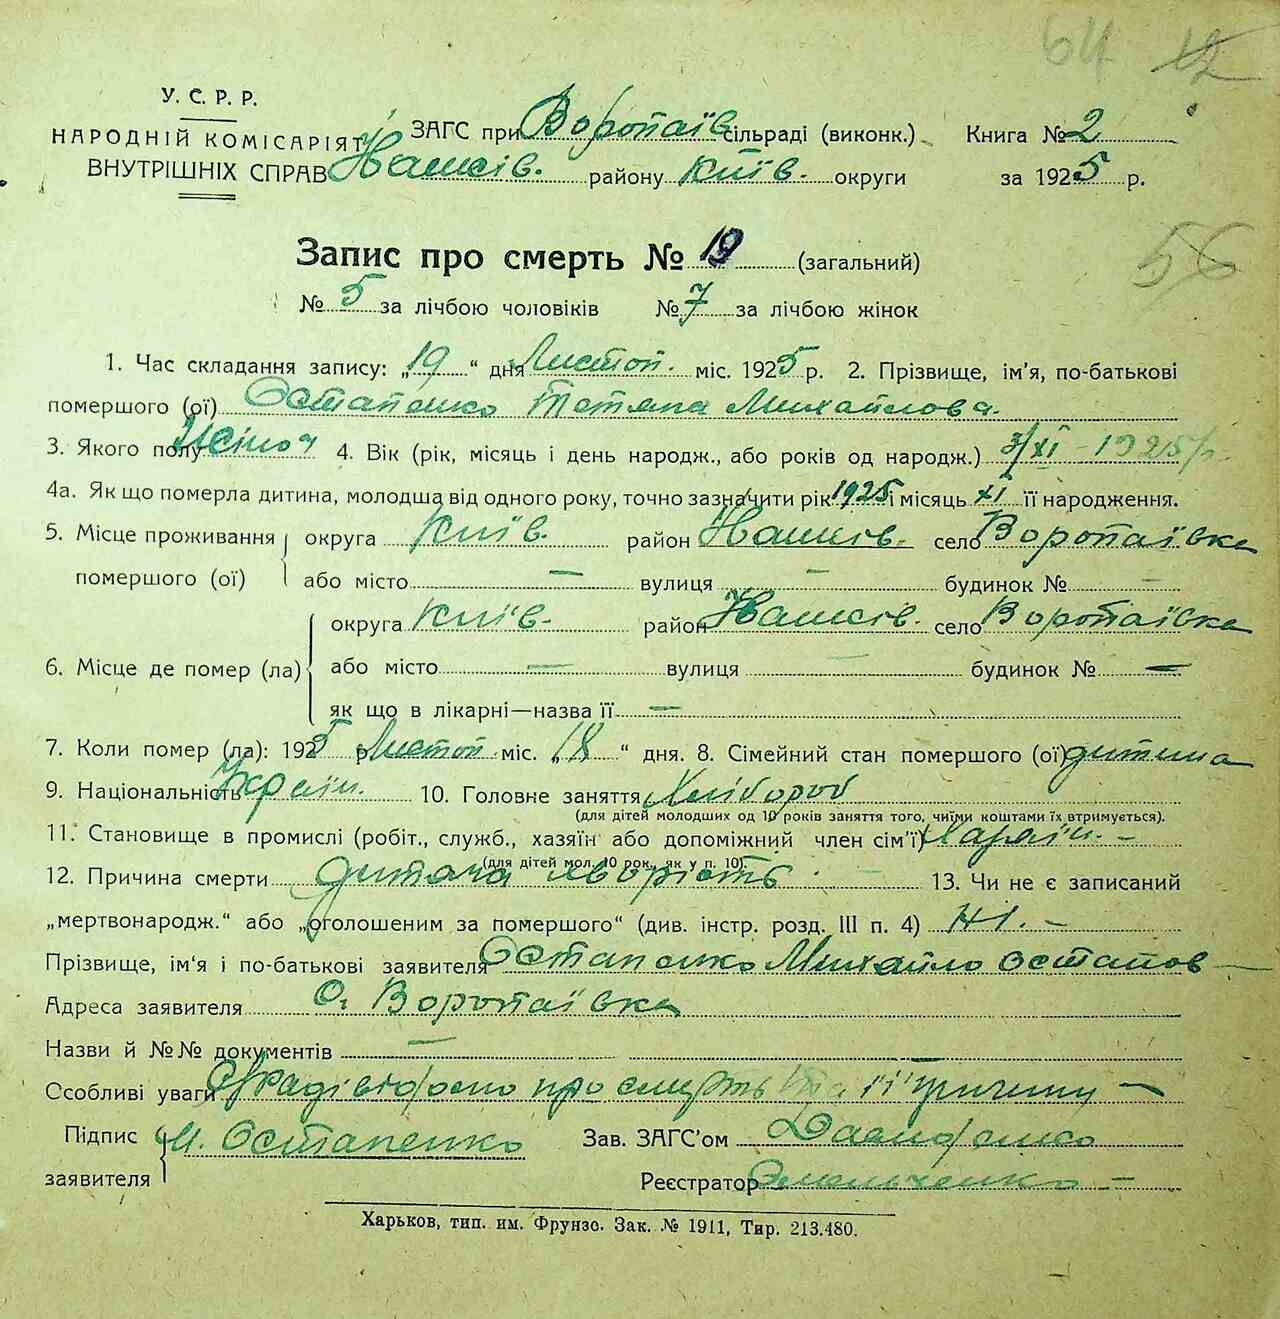 64 12
У. С. Р. Р.
НАРОДНІЙ КОМІСАРІЯТ
ВНУТРІШНІХ СПРАВ
ЗАГС при Воропаїв сільраді (виконк.)
района Київ. округи
Книга № 2
за 1925 р.
56
Запис про смерть № 19 (загальний)
№ 5 за лічбою чоловіків № 7 за лічбою жінок
1. Час складання запису: „19“ дня Листоп. міс. 1925 р. 2. Прізвище, ім'я, по-батькові
помершого (ої) Остапенко Тетяна Михайлова.
3. Якого полу жіноч 4. Вік (рік, місяць і день народж., або років од народж.) 3/XI - 1925 р.
4а. Як що померла дитина, молодша від одного року, точно зазначити рік 1925 і місяць XI її народження.
5. Місце проживання помершого (ої) округа Київ. район село Воропаївка
або місто — вулиця — будинок № —
6. Місце де помер (ла) округа Київ. район село Воропаївка
або місто — вулиця — будинок № —
як що в лікарні—назва її —
7. Коли помер (ла): 1925 р Листоп. міс. „18“ дня. 8. Сімейний стан помершого (ої) дитина
9. Національність Україн. 10. Головне заняття Хлібороб
(для дітей молодших од 10 років заняття того, чиїми коштами їх втримується).
11. Становище в промислі (робіт., служб., хазяїн або допоміжний член сім'ї)
(для дітей мол. 10 рок., як у п. 10).
12. Причина смерти Дитяча хворість 13. Чи не є записаний
„мертвонародж.“ або „оголошеним за помершого“ (див. інстр. розд. III п. 4) Ні. —
Прізвище, ім'я і по-батькові заявителя Остапенко Михайло Остапов —
Адреса заявителя с. Воропаївка
Назви й №№ документів —
Особливі уваги про смерть та її причину —
Підпис заявителя М. Остапенко Зав. ЗАГС'ом
Реєстратор Омельченко —
Харьков, тип. им. Фрунзе. Зак. № 1911, Тир. 213.480.